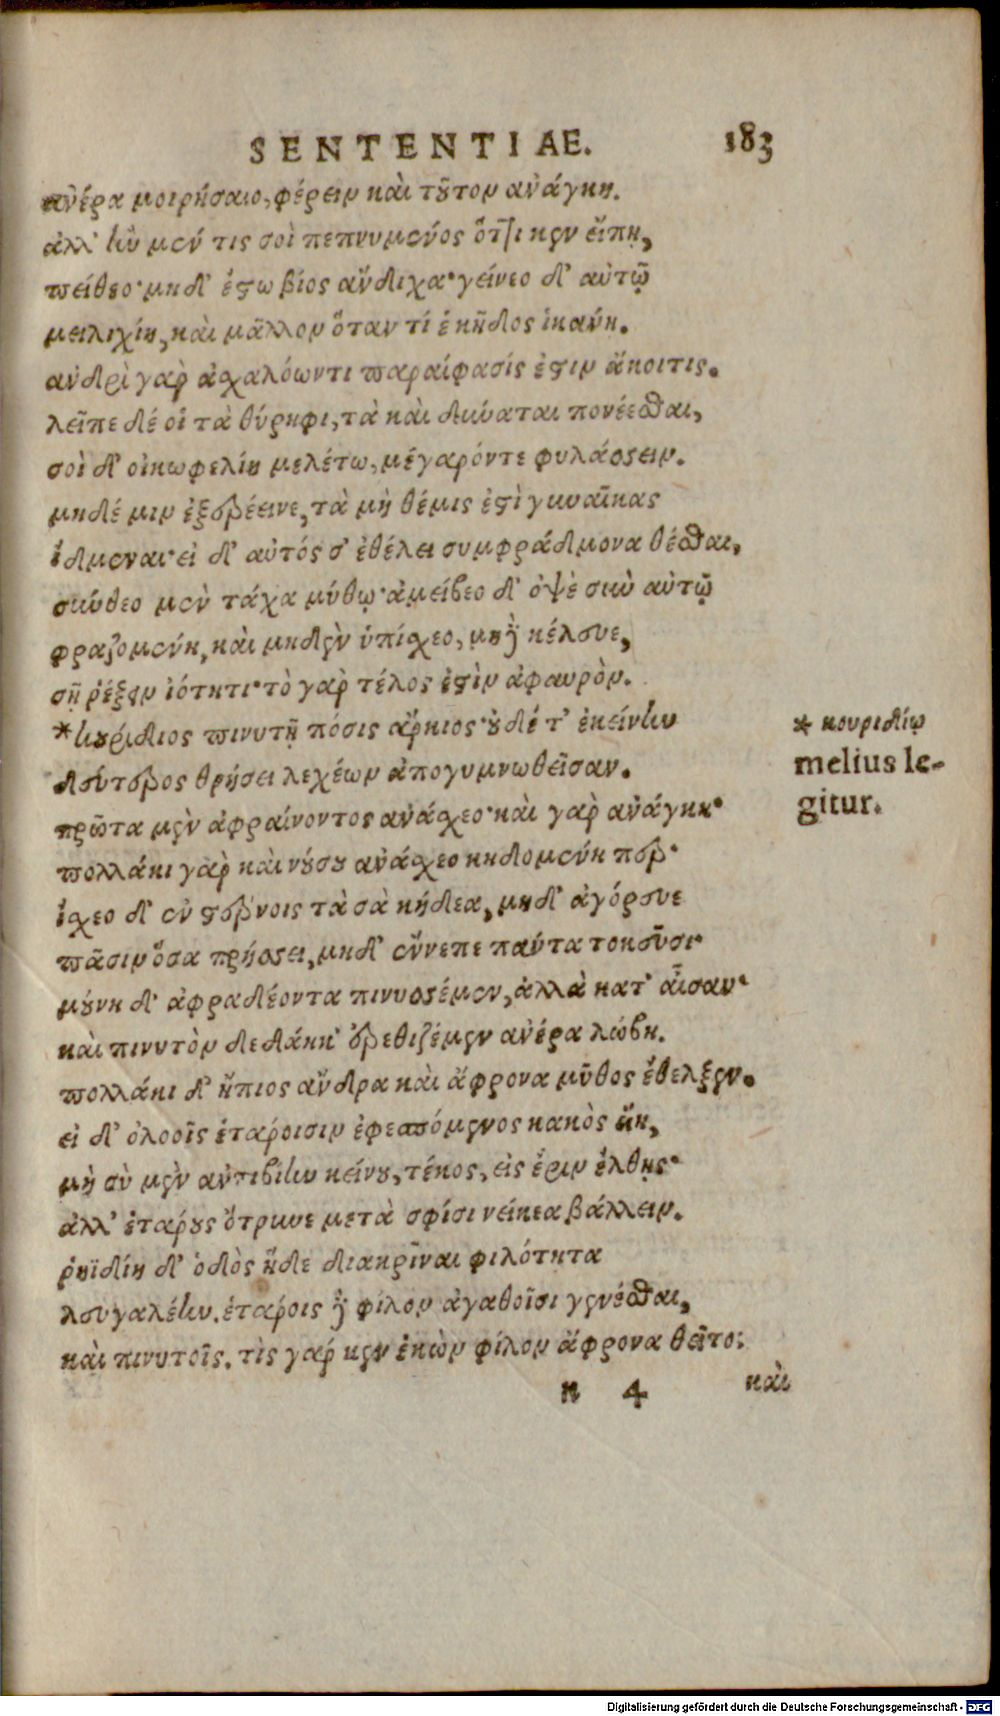 SENTENTIAE. 183
ἀνέρα μοιρήσαιο, φέρειν καὶ τοῦτον ἀνάγκη.
ἀλλ' ἢν μέν τις σοὶ πεπνυμένος ὅττι κεν εἴπῃ,
πείθεο· μηδ' ἔστω βίος ἄνδιχα· γείνεο δ' αὐτῷ
μειλιχίη, καὶ μᾶλλον ὅταν τί ἑ κῆδος ἱκάνῃ.
ἀνδρὶ γὰρ ἀσχαλόωντι παραίφασίς ἐστιν ἄκοιτις.
λεῖπε δέ οἱ τὰ θύρηφι, τὰ καὶ δύναται πονέεσθαι,
σοὶ δ' οἰκωφελίη μελέτω, μέγαρόν τε φυλάσσειν.
μηδέ μιν ἐξερέεινε, τὰ μὴ θέμις ἐστὶ γυναῖκας
ἴδμεναι· εἰ δ' αὐτός σ' ἐθέλει συμφράδμονα θέσθαι,
σκύθεο μὲν τάχα μύθῳ· ἀμείβεο δ' ὀψὲ σὺν αὐτῷ
φραζομένη, καὶ μηδὲν ὑπίσχεο, μηδὲ κέλευε,
σῇ ῥέξειν ἰότητι· τὸ γὰρ τέλος ἐστὶν ἀφαυρόν.
*κουρίδιος πινυτῇ πόσις ἄρκιος· οὐδέ τ' ἐκείνην
δεύτερος θρήσει λεχέων ἀπογυμνωθεῖσαν.
* κουριδίῳ
melius le-
gitur.
πρῶτα μὲν ἀφραίνοντος ἀνάσχεο· καὶ γὰρ ἀνάγκη·
πολλάκι γὰρ καὶ νούσου ἀνάσχεο κηδομένη περ·
ἴσχεο δ' ἐν στέρνοις τὰ σὰ κήδεα, μηδ' ἀγόρευε
πᾶσιν ὅσα πρήσσει, μηδ' ἔννεπε πάντα τοκεῦσι·
μούνη δ' ἀφραδέοντα πινυσσέμεν, ἀλλὰ κατ' αἶσαν·
καὶ πινυτὸν δεδάηκ' ἐρεθιζέμεν ἀνέρα λώβη.
πολλάκι δ' ἤπιος ἄνδρα καὶ ἄφρονα μῦθος ἔθελξεν.
εἰ δ' ὀλοοῖς ἑτάροισιν ἐφεσπόμενος κακὸς εἴη,
μὴ σὺ μὲν ἀντιβίην κείνου, τέκος, εἰς ἔριν ἔλθῃς·
ἀλλ' ἑτάρους ὄτρυνε μετὰ σφίσι νείκεα βάλλειν.
ῥηϊδίη δ' ὁδὸς ἥδε διακρῖναι φιλότητα
λευγαλέην. ἑτάροις δὲ φίλον ἀγαθοῖσι γενέσθαι,
καὶ πινυτοῖς. τὶς γάρ κεν ἑκὼν φίλον ἄφρονα θεῖτο;
n 4 καὶ
Digitalisierung gefördert durch die Deutsche Forschungsgemeinschaft - DFG